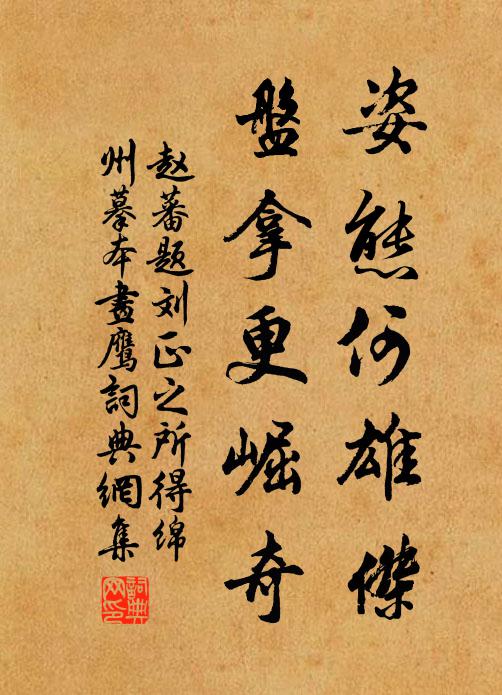 姿態何雄傑
盤拿更崛奇
赵蕃题刘正之所得绵
州摹本畫鹰詞典網集